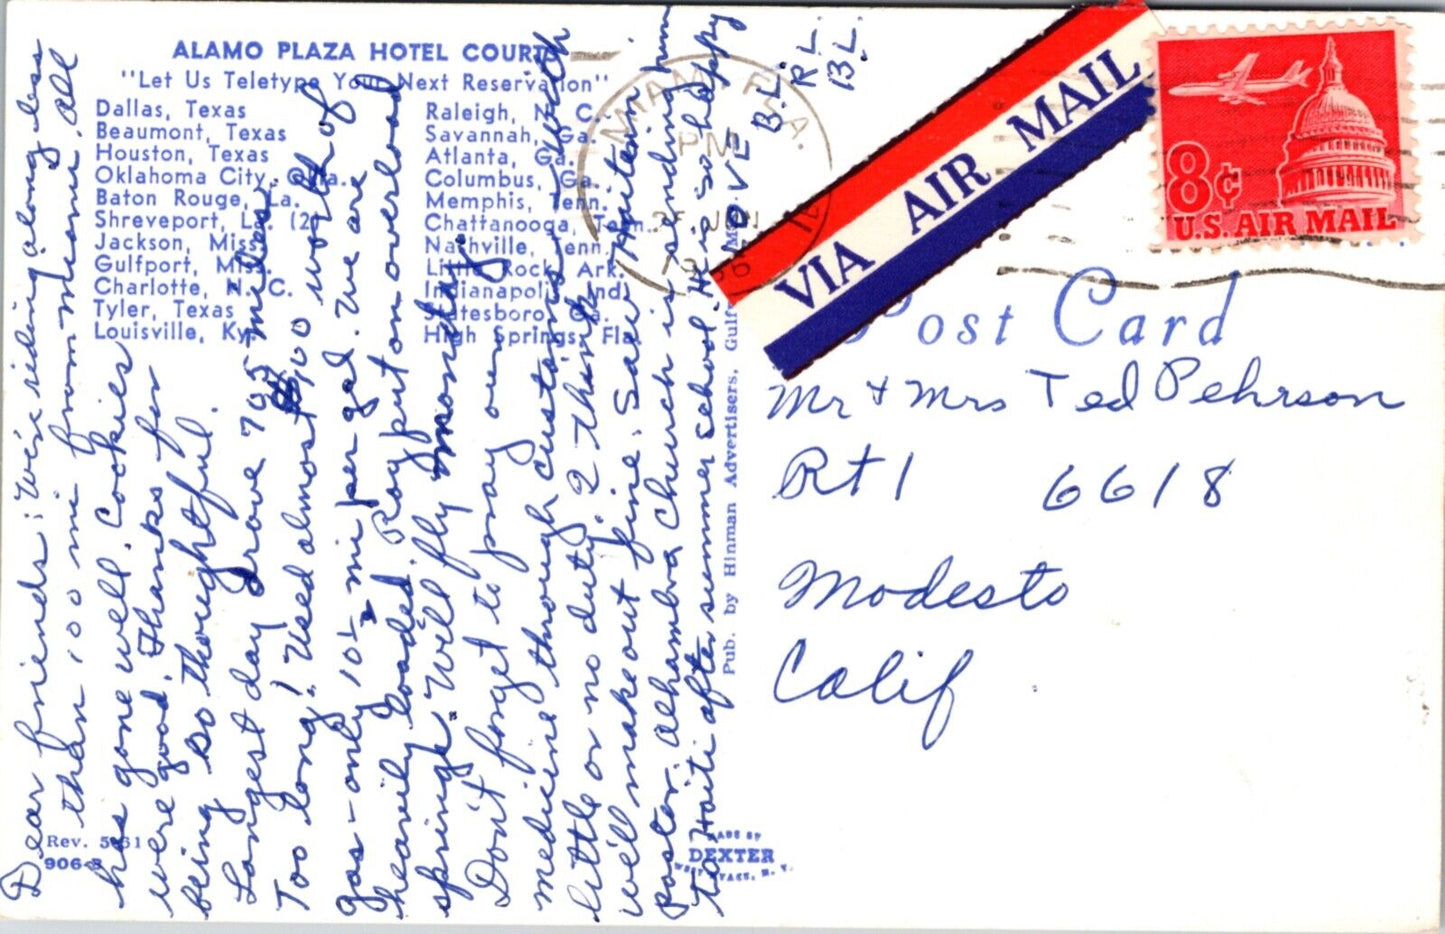 ALAMO PLAZA HOTEL COURTS
"Let Us Teletype Your Next Reservation"
Dallas, Texas
Beaumont, Texas
Houston, Texas
Oklahoma City, Okla.
Baton Rouge, La.
Shreveport, La. (2)
Jackson, Miss.
Gulfport, Miss.
Charlotte, N. C.
Tyler, Texas
Louisville, Ky.
Raleigh, N. C.
Savannah, Ga.
Atlanta, Ga.
Columbus, Ga.
Memphis, Tenn.
Chattanooga, Tenn.
Nashville, Tenn.
Little Rock, Ark.
Indianapolis, Ind.
Statesboro, Ga.
High Springs, Fla.
Dear friends: We're riding along less
than 100 mi from Miami. All
has gone well. Cookies
were good. Thanks for
being so thoughtful.
Longest day drove 795 miles.
Too long! Used almost 100 worth of
gas - only 10½ mi per gal. We are
heavily loaded. Ray put on overload
springs. We'll fly Monday.
Don't forget to pray our
medicine through customs with
little or no duty. I think
we'll make out fine. Saw Haitian
pastor. Alhambra Church is sending him
to Haiti after summer school. He is so happy
LOVE B.L.
R.L.
B.L.
Rev. 5-61
906-B
Pub. by Hinman Advertisers, Gulf
MADE BY
DEXTER
WEST NYACK, N. Y.
MIAMI, FLA.
PM
JUN
VIA AIR MAIL
8¢
U.S. AIR MAIL
Post Card
Mr & Mrs Ted Pehrson
Rt 1 6618
Modesto
Calif